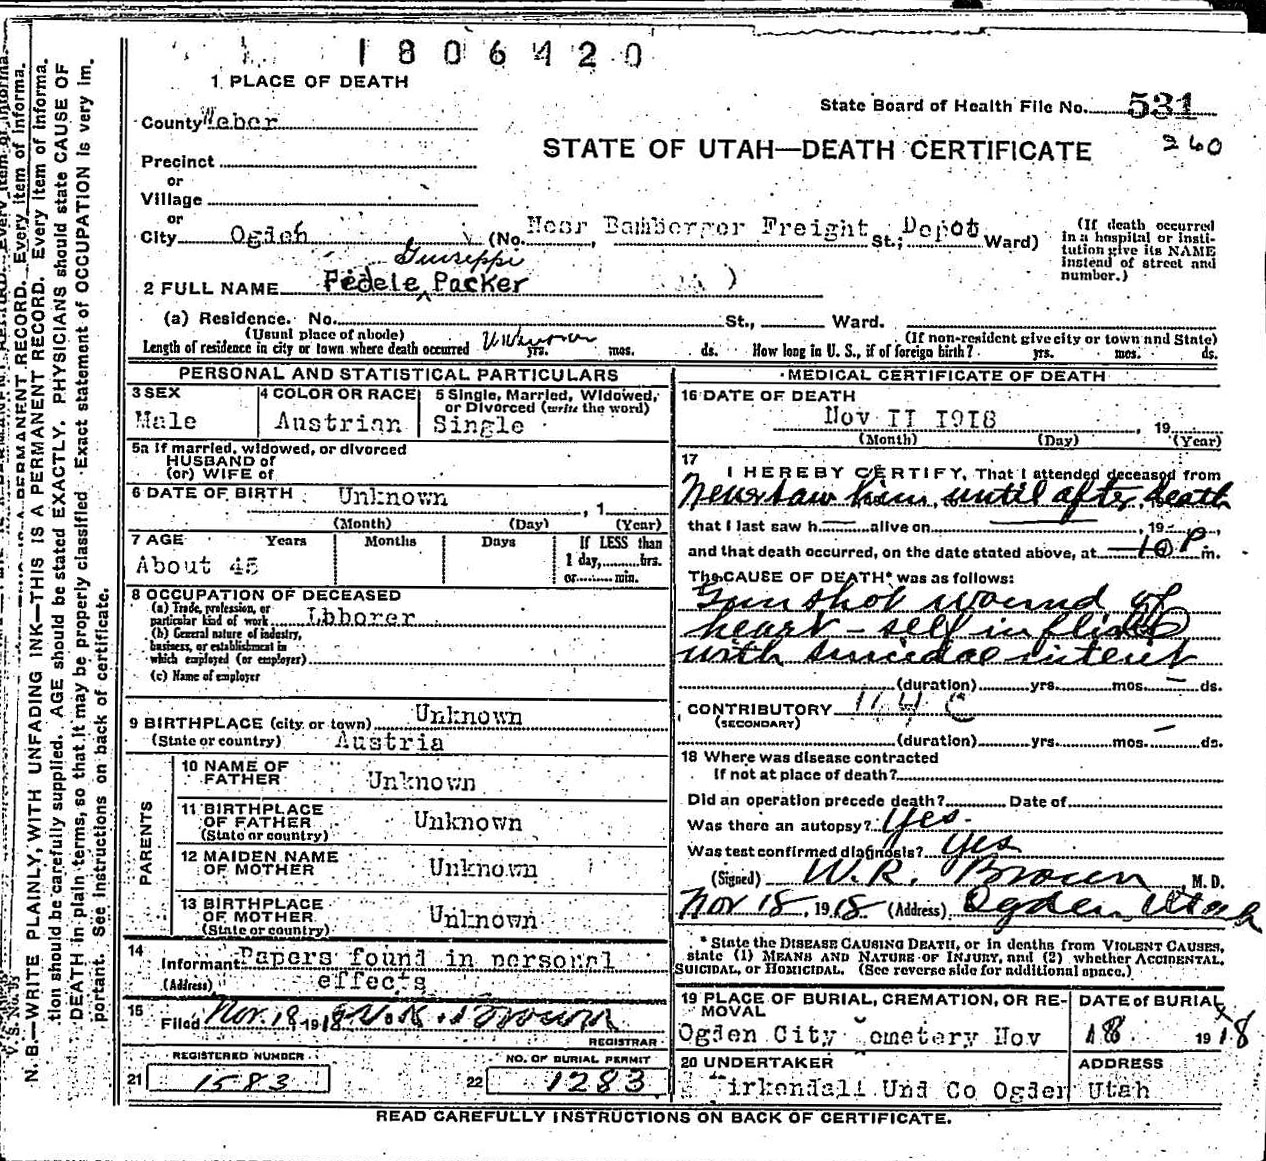 1806420
1 PLACE OF DEATH
State Board of Health File No. 531
County Weber
260
STATE OF UTAH—DEATH CERTIFICATE
Precinct
or
Village
or
City Ogden (No. Near Bamberger Freight St.; Depot Ward)
(If death occurred in a hospital or insti-tution give its NAME instead of street and number.)
Guiseppi
2 FULL NAME Fedele Packer )
(a) Residence. No. St., Ward.
(Usual place of abode) (If non-resident give city or town and State)
Length of residence in city or town where death occurred Unknown yrs. mos. ds. How long in U. S., if of foreign birth? yrs. mos. ds.
PERSONAL AND STATISTICAL PARTICULARS
3 SEX
Male
4 COLOR OR RACE
Austrian
5 Single, Married, Widowed, or Divorced (write the word)
Single
5a If married, widowed, or divorced
HUSBAND of
(or) WIFE of
6 DATE OF BIRTH Unknown , 1
(Month) (Day) (Year)
7 AGE Years Months Days If LESS than
1 day, hrs.
or min.
About 45
8 OCCUPATION OF DECEASED
(a) Trade, profession, or
particular kind of work Lbborer
(b) General nature of industry,
business, or establishment in
which employed (or employer)
(c) Name of employer
9 BIRTHPLACE (city or town) Unknown
(State or country) Austria
PARENTS
10 NAME OF
FATHER Unknown
11 BIRTHPLACE
OF FATHER Unknown
(State or country)
12 MAIDEN NAME
OF MOTHER Unknown
13 BIRTHPLACE
OF MOTHER Unlnown
(State or country)
14
Informant Papers found in personal
(Address) effects
15
Filed Nov. 18 1918 W.R. Brown
REGISTRAR
REGISTERED NUMBER
21 1583
NO. OF BURIAL PERMIT
22 1283
MEDICAL CERTIFICATE OF DEATH
16 DATE OF DEATH
Nov II 1918 , 19
(Month) (Day) (Year)
17
I HEREBY CERTIFY, That I attended deceased from
Never saw him, until after death
that I last saw h alive on , 19
and that death occurred, on the date stated above, at 10 P m.
The CAUSE OF DEATH* was as follows:
Gunshot wound of
heart - self inflicted
with suicidal intent
(duration) yrs. mos. ds.
CONTRIBUTORY 114 C
(SECONDARY)
(duration) yrs. mos. ds.
18 Where was disease contracted
if not at place of death?
Did an operation precede death? Date of
Was there an autopsy? Yes.
Was test confirmed diagnosis? Yes
(Signed) W.R. Brown, M. D.
Nov 18, 1918 (Address) Ogden, Utah
* State the DISEASE CAUSING DEATH, or in deaths from VIOLENT CAUSES,
state (1) MEANS AND NATURE OF INJURY, and (2) whether ACCIDENTAL,
SUICIDAL, or HOMICIDAL. (See reverse side for additional space.)
19 PLACE OF BURIAL, CREMATION, OR RE-
MOVAL
Ogden City emetery Nov
DATE of BURIAL
18 1918
20 UNDERTAKER
irkendall Und Co Ogden
ADDRESS
Utah
READ CAREFULLY INSTRUCTIONS ON BACK OF CERTIFICATE.
N. B.—WRITE PLAINLY, WITH UNFADING INK—THIS IS A PERMANENT RECORD. Every item of informa-
tion should be carefully supplied. AGE should be stated EXACTLY. PHYSICIANS should state CAUSE OF
DEATH in plain terms, so that it may be properly classified. Exact statement of OCCUPATION is very im-
portant. See instructions on back of certificate.